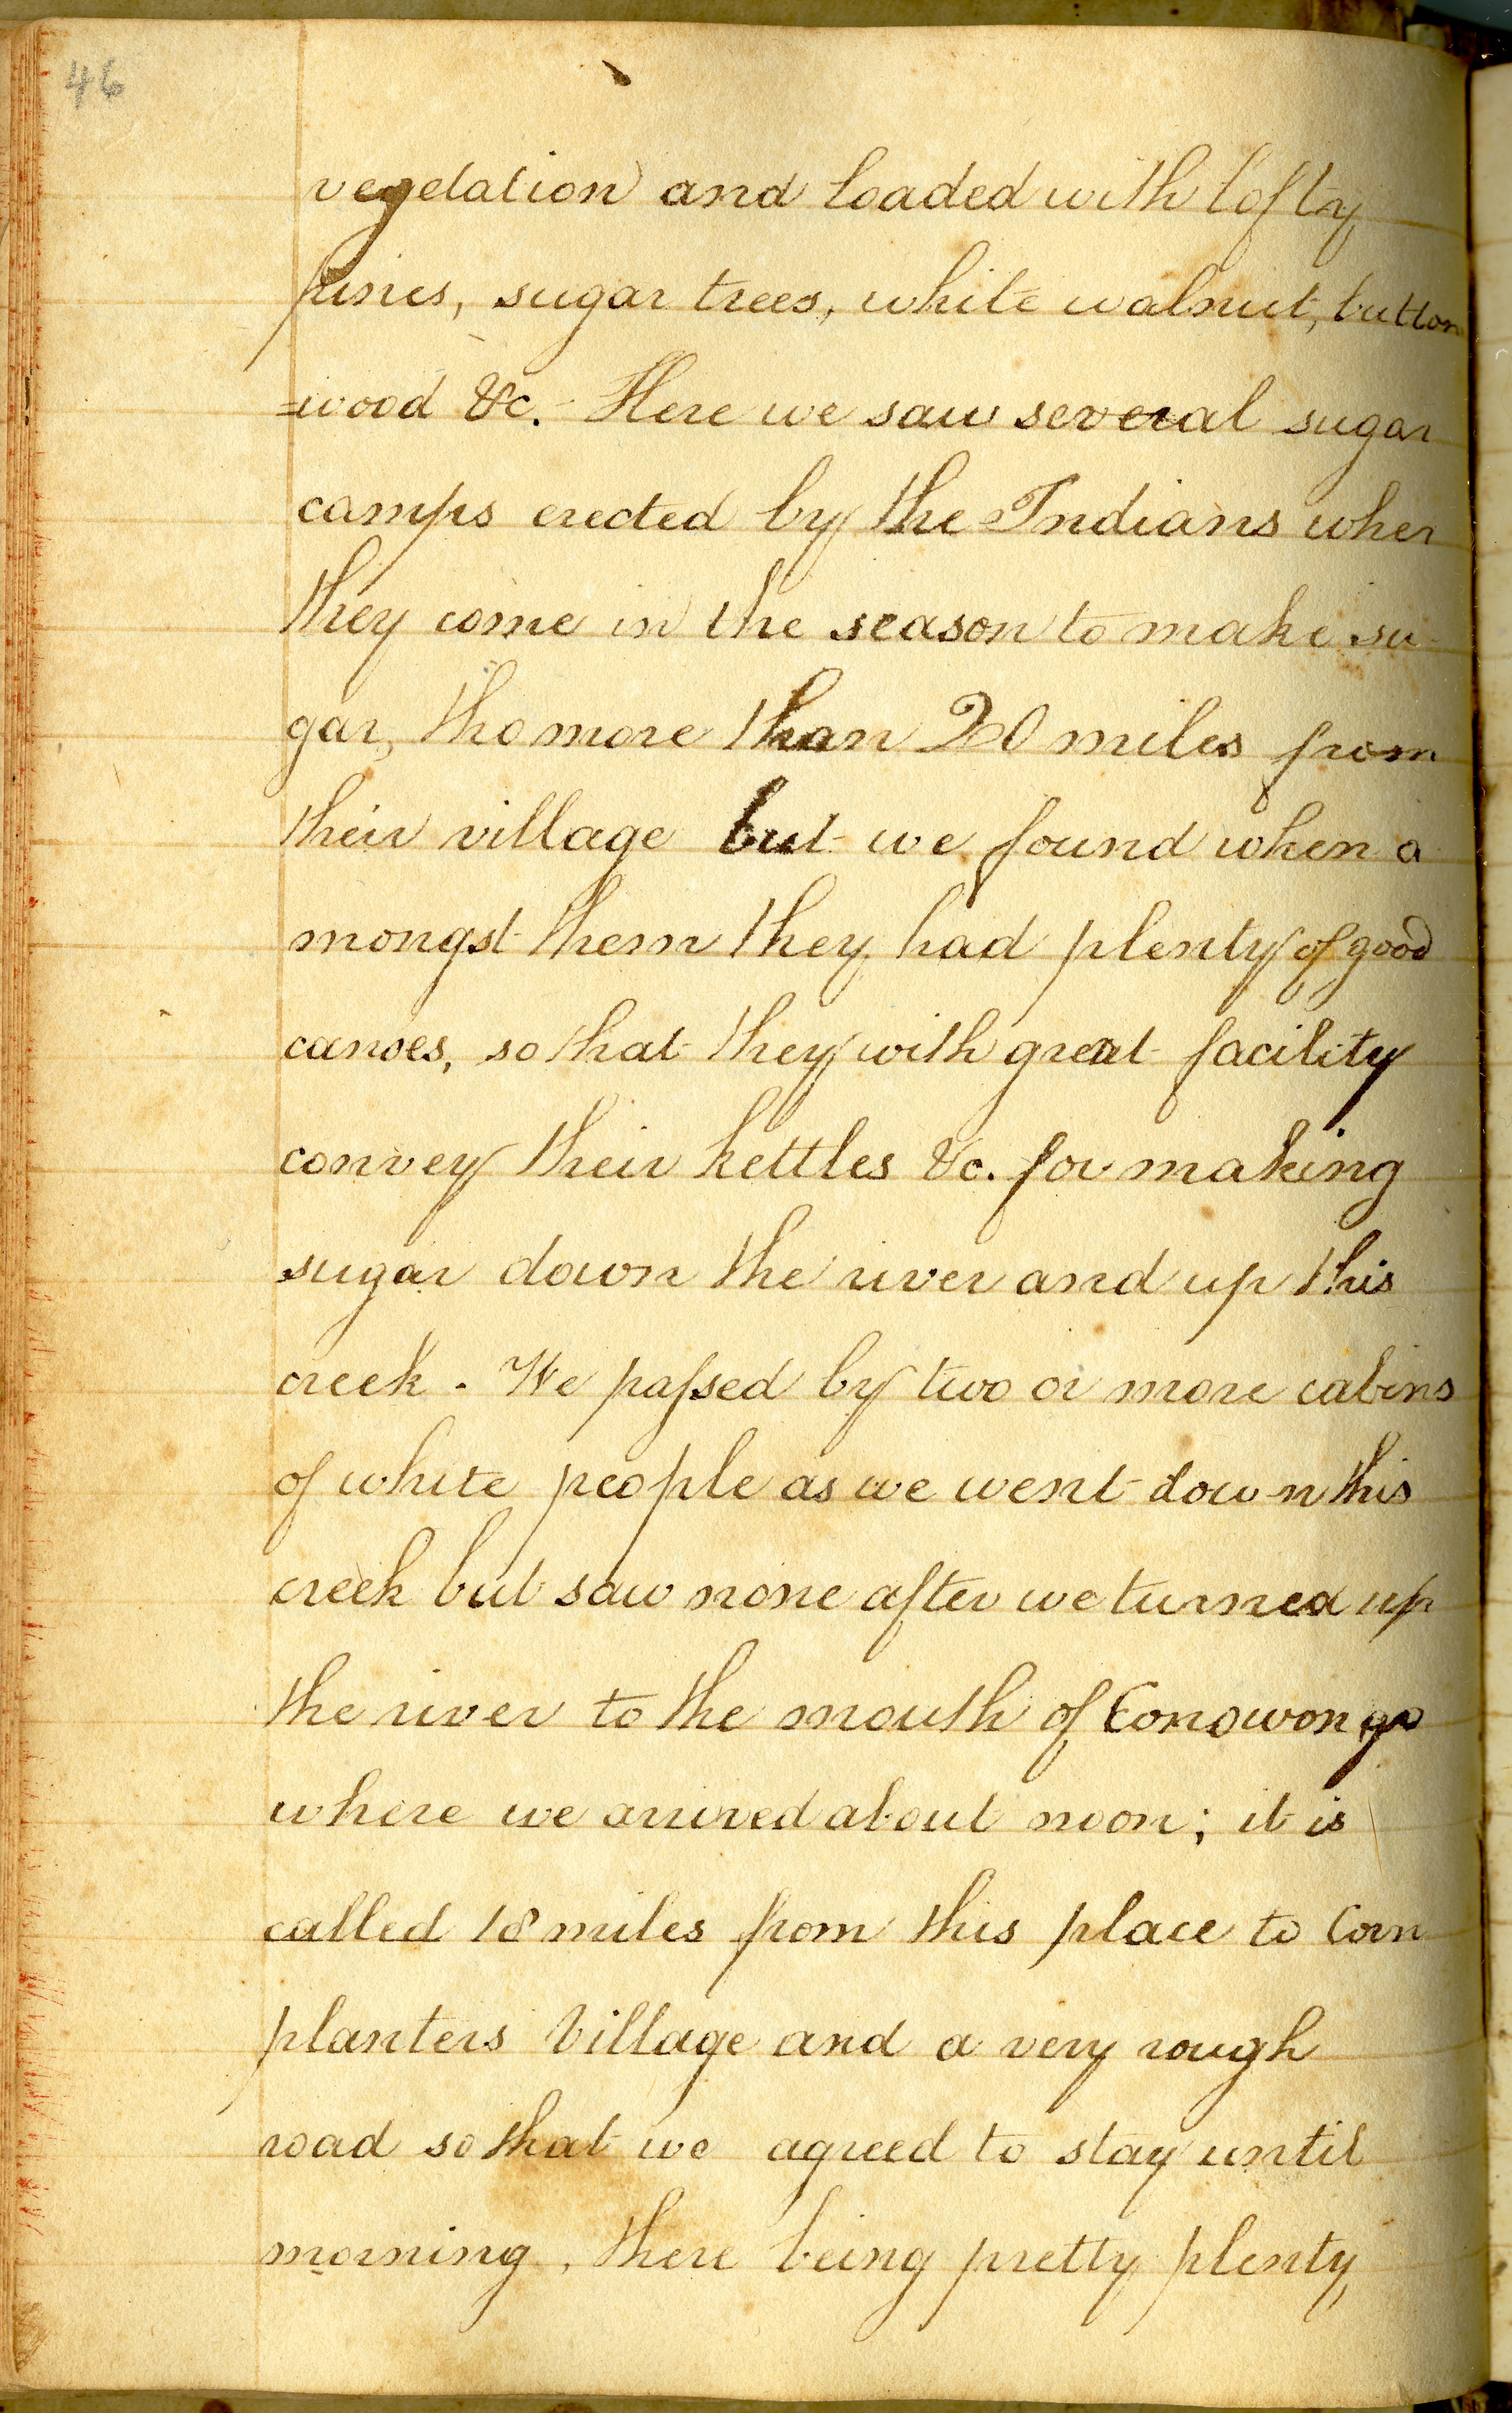 46
vegetation and loaded with lofty
pines, sugar trees, white walnut, button
=wood &c. Here we saw several sugar
camps erected by the Indians when
they come in the season to make su-
gar, tho more than 20 miles from
their village but we found when a
mongst them they had plenty of good
canoes, so that they with great facility
convey their kettles &c. for making
sugar down the river and up this
creek. We paſsed by two or more cabins
of white people as we went down this
creek but saw none after we turned up
the river to the mouth of Conowongo
where we arrived about noon; it is
called 18 miles from this place to Corn
planters Village and a very rough
road so that we agreed to stay until
morning, there being pretty plenty